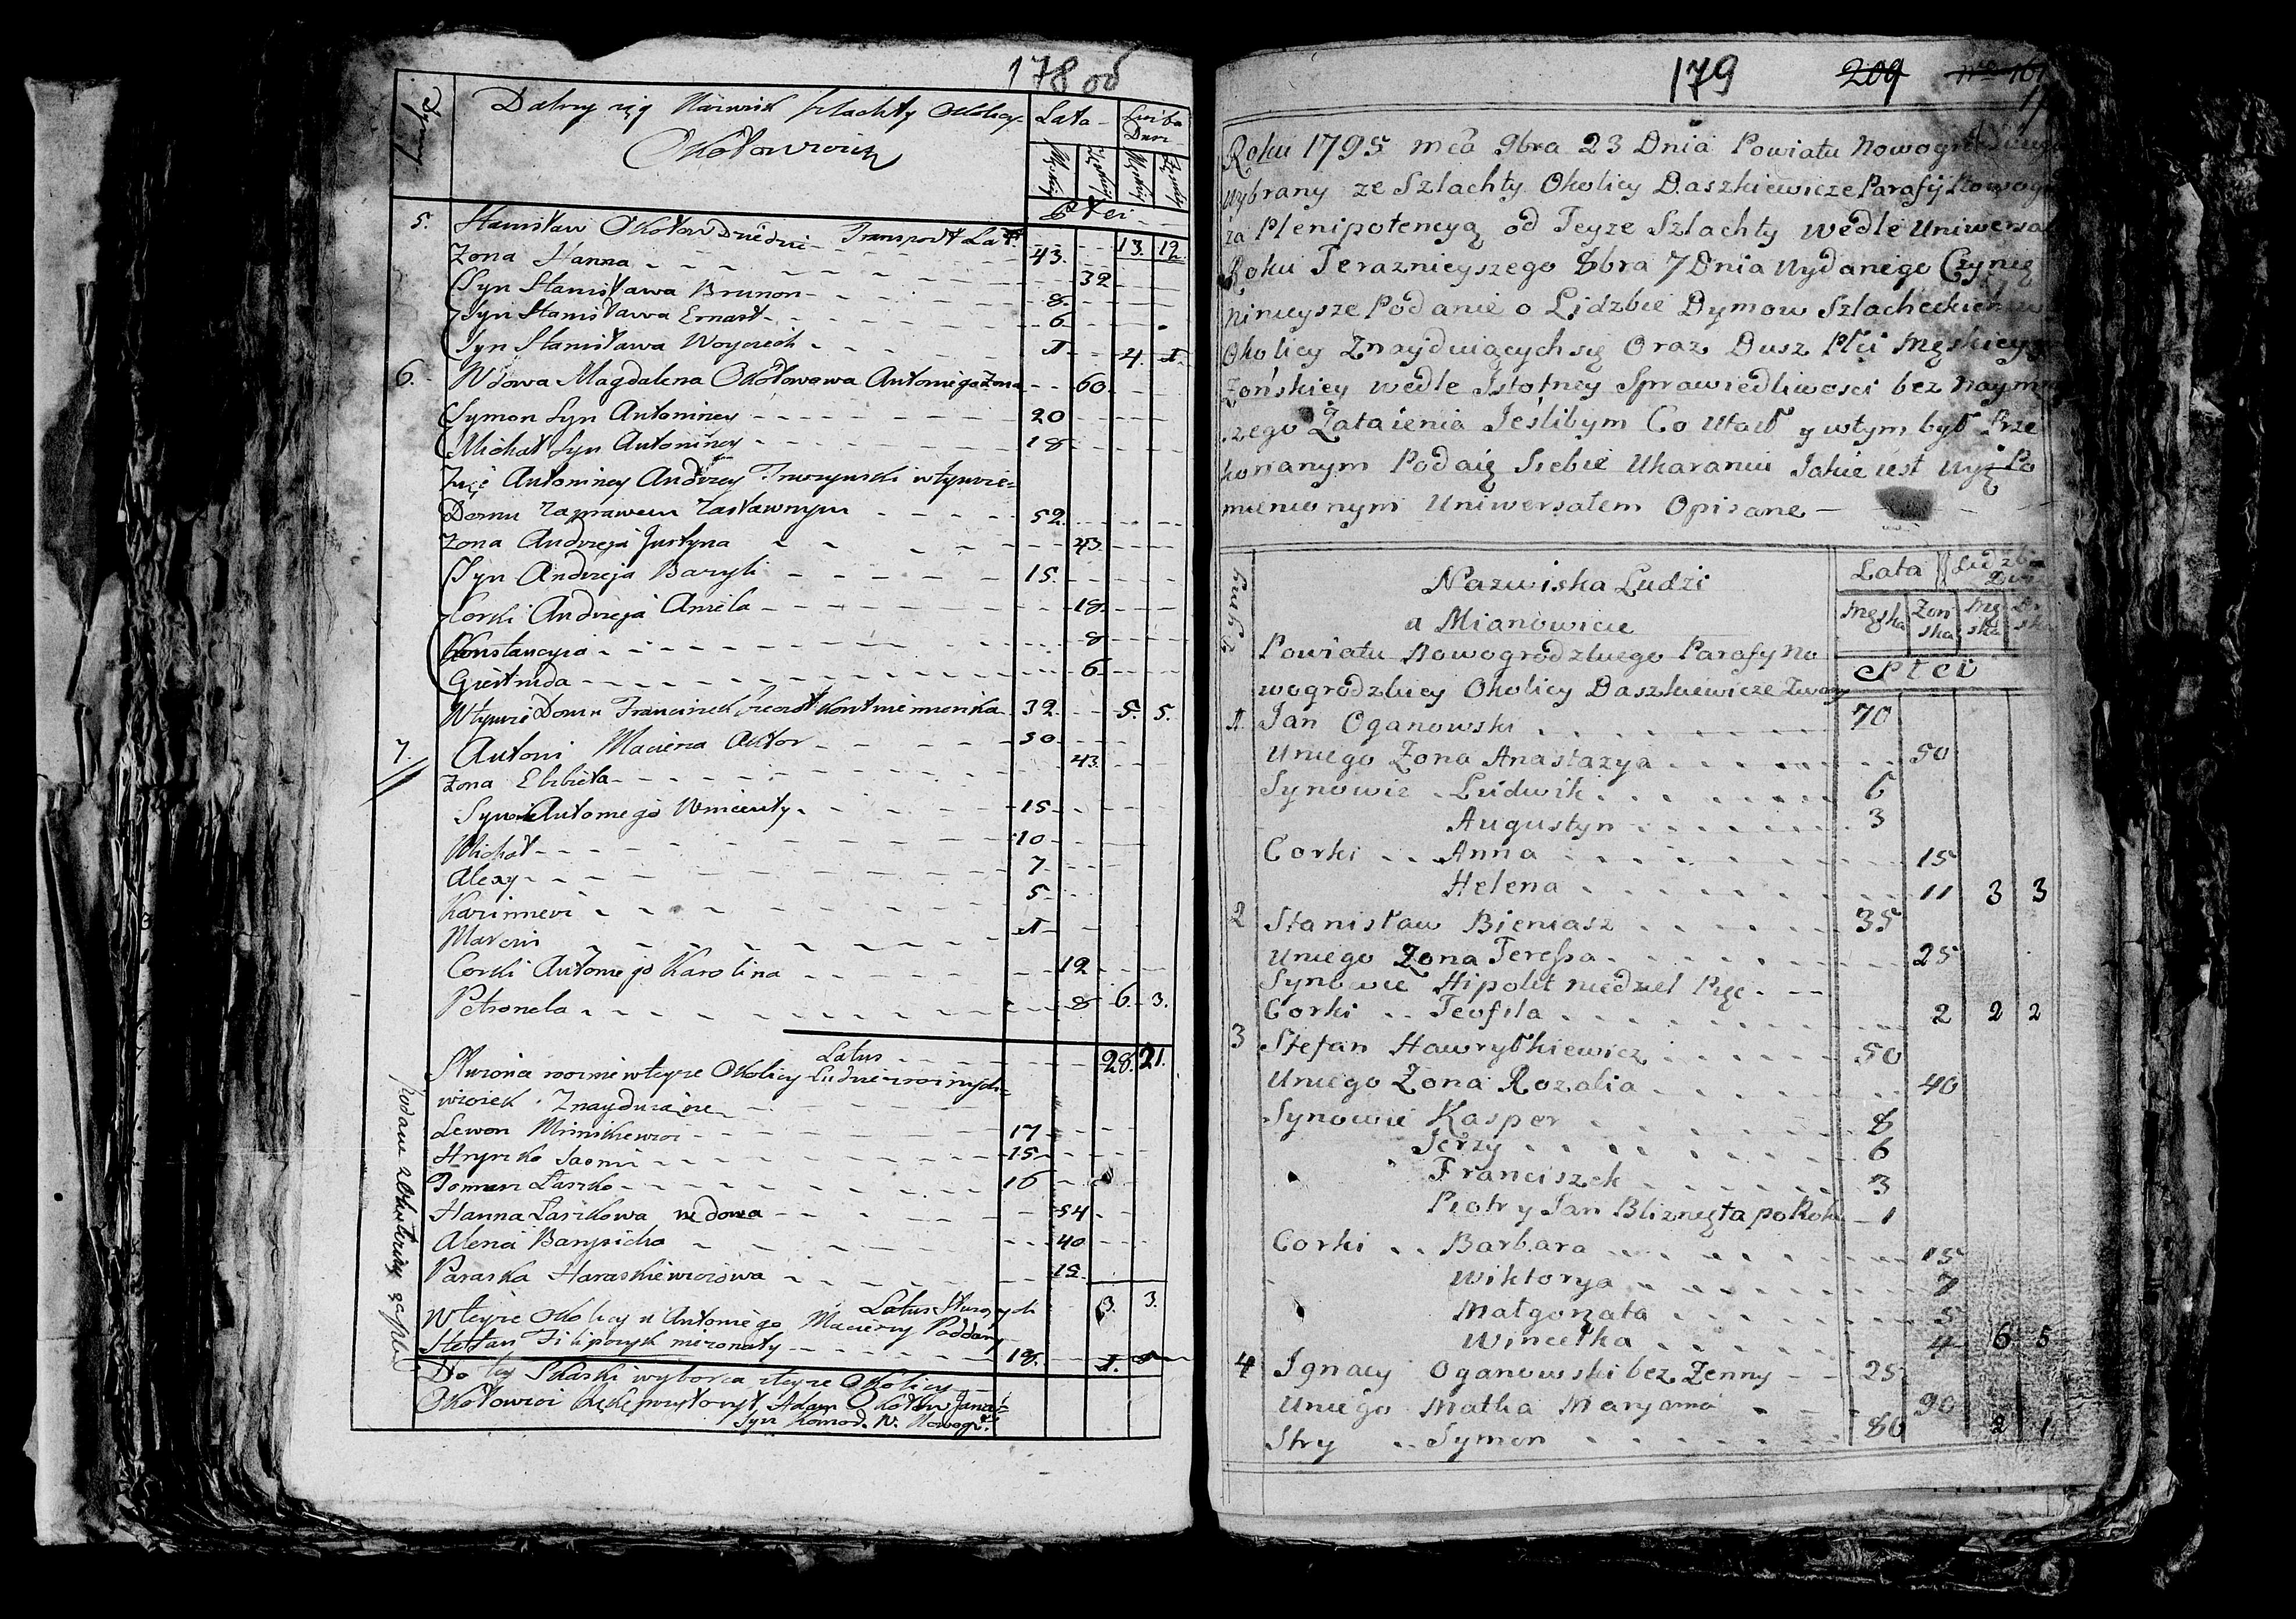 178 об
Dymy
Dalszy ciąg Nazwisk szlachty Okolicy
Okołowicz
Lata
Liczba Dusz
Męskiey
Żeńskiey
Męskiey
Żeńskiey
Płci
Transport Lat. 13. 12
5. Stanisław Okołow Dziedzic 43.
Zona Hanna 32
Syn Stanisława Brunon 8
Syn Stanisława Ernest 6
Syn Stanisława Woyciech 1 4. 1.
6. Wdowa Magdalena Okołowowa Antoniego Zona 60
Symon Syn Antoniney 20
Michał Syn Antoniney 18
Zięć Antoniney Andrzey w tymże
Domu za prawem Zastawnym 52
Zona Andrzeja Justyna 43.
Syn Andrzeja Bazyli 15.
Corki Andrzeja Aniela 18
Konstancyia 8
Giertruda 6
W tymże Domu Franciszek 32 5. 5.
7. Antoni Macieria Aktor 50
Zona Elzbieta 43.
Synowie Antoniego Wincenty 15
Michał 10
Alexy 7
Kazimierz 5
Marcin 1
Corki Antoniego Karolina 12
Petronela 8 6. 3.
Latus 28. 21.
Służąca w teyze Okolicy Ludzie z roznych
wiosek Znayduiące
Lewon 17
Hryszko 15
Roman Łaszko 16
Hanna Łaszkowa wdowa 54
Alena Barysicha 40
Paraska Haraskiewiczowa 12
Latus Służących 3. 3.
W teyze Okolicy u Antoniego Macierzy Poddany
Stefan nieżonaty 18. 1.
Do tey Skaski wyborca z teyze Okolicy
Okołowicz Rękę przyłożył Adam Okołow Jana
Syn Komor. W. Nowogr.
179
209
Roku 1795 mca 9bra 23 Dnia Powiatu Nowogrodzkiego
wybrany ze Szlachty Okolicy Daszkiewicze Parafij
za Plenipotencyą od Teyze Szlachty wedle Uniwersału
Roku Terazniejszego 8bra 7 Dnia wydanego Czynię
ninieysze Podanie o Lidzbie Dymow Szlacheckich w
Okolicy Znayduiących się Oraz Dusz Płci męskiey y
Zońskiey wedle Istotney Sprawiedliwosci bez naymniey
szego Zataienia Jeslibym Co Utaił y wtym był Prze
konanym Podaię Siebie Ukaraniu Jakie iest wyż Po
mienionym Uniwersałem Opisane
Dymy
Nazwiska Ludzi
a Mianowicie
Powiatu Nowogrodzkiego Parafy No
wogrodzkiey Okolicy Daszkiewicze Zwany
Lata
Lidzba Dusz
Męska
Zońska
Męska
Płci
1 Jan Oganowski 70
Uniego Zona Anastazya 50
Synowie Ludwik 6
Augustyn 3
Corki Anna 15
Helena 11 3 3
2 Stanisław Bieniasz 35
Uniego Zona Teressa 25
Synowie Hipolit niedziel Pięc
Corki Teofila 2 2 2
3 Stefan Hawryłkiewicz 50
Uniego Zona Rozalia 40
Synowie Kasper 8
Jerzy 6
Franciszek 3
Piotr y Jan Bliznięta po Roku 1
Corki Barbara 15
Wiktorya 7
Małgorzata 5
Wincetka 4 6 5
4 Ignacy Oganowski bez Zenny 25
Uniego Matka Maryanna 90
Stry Symon 80 2 1